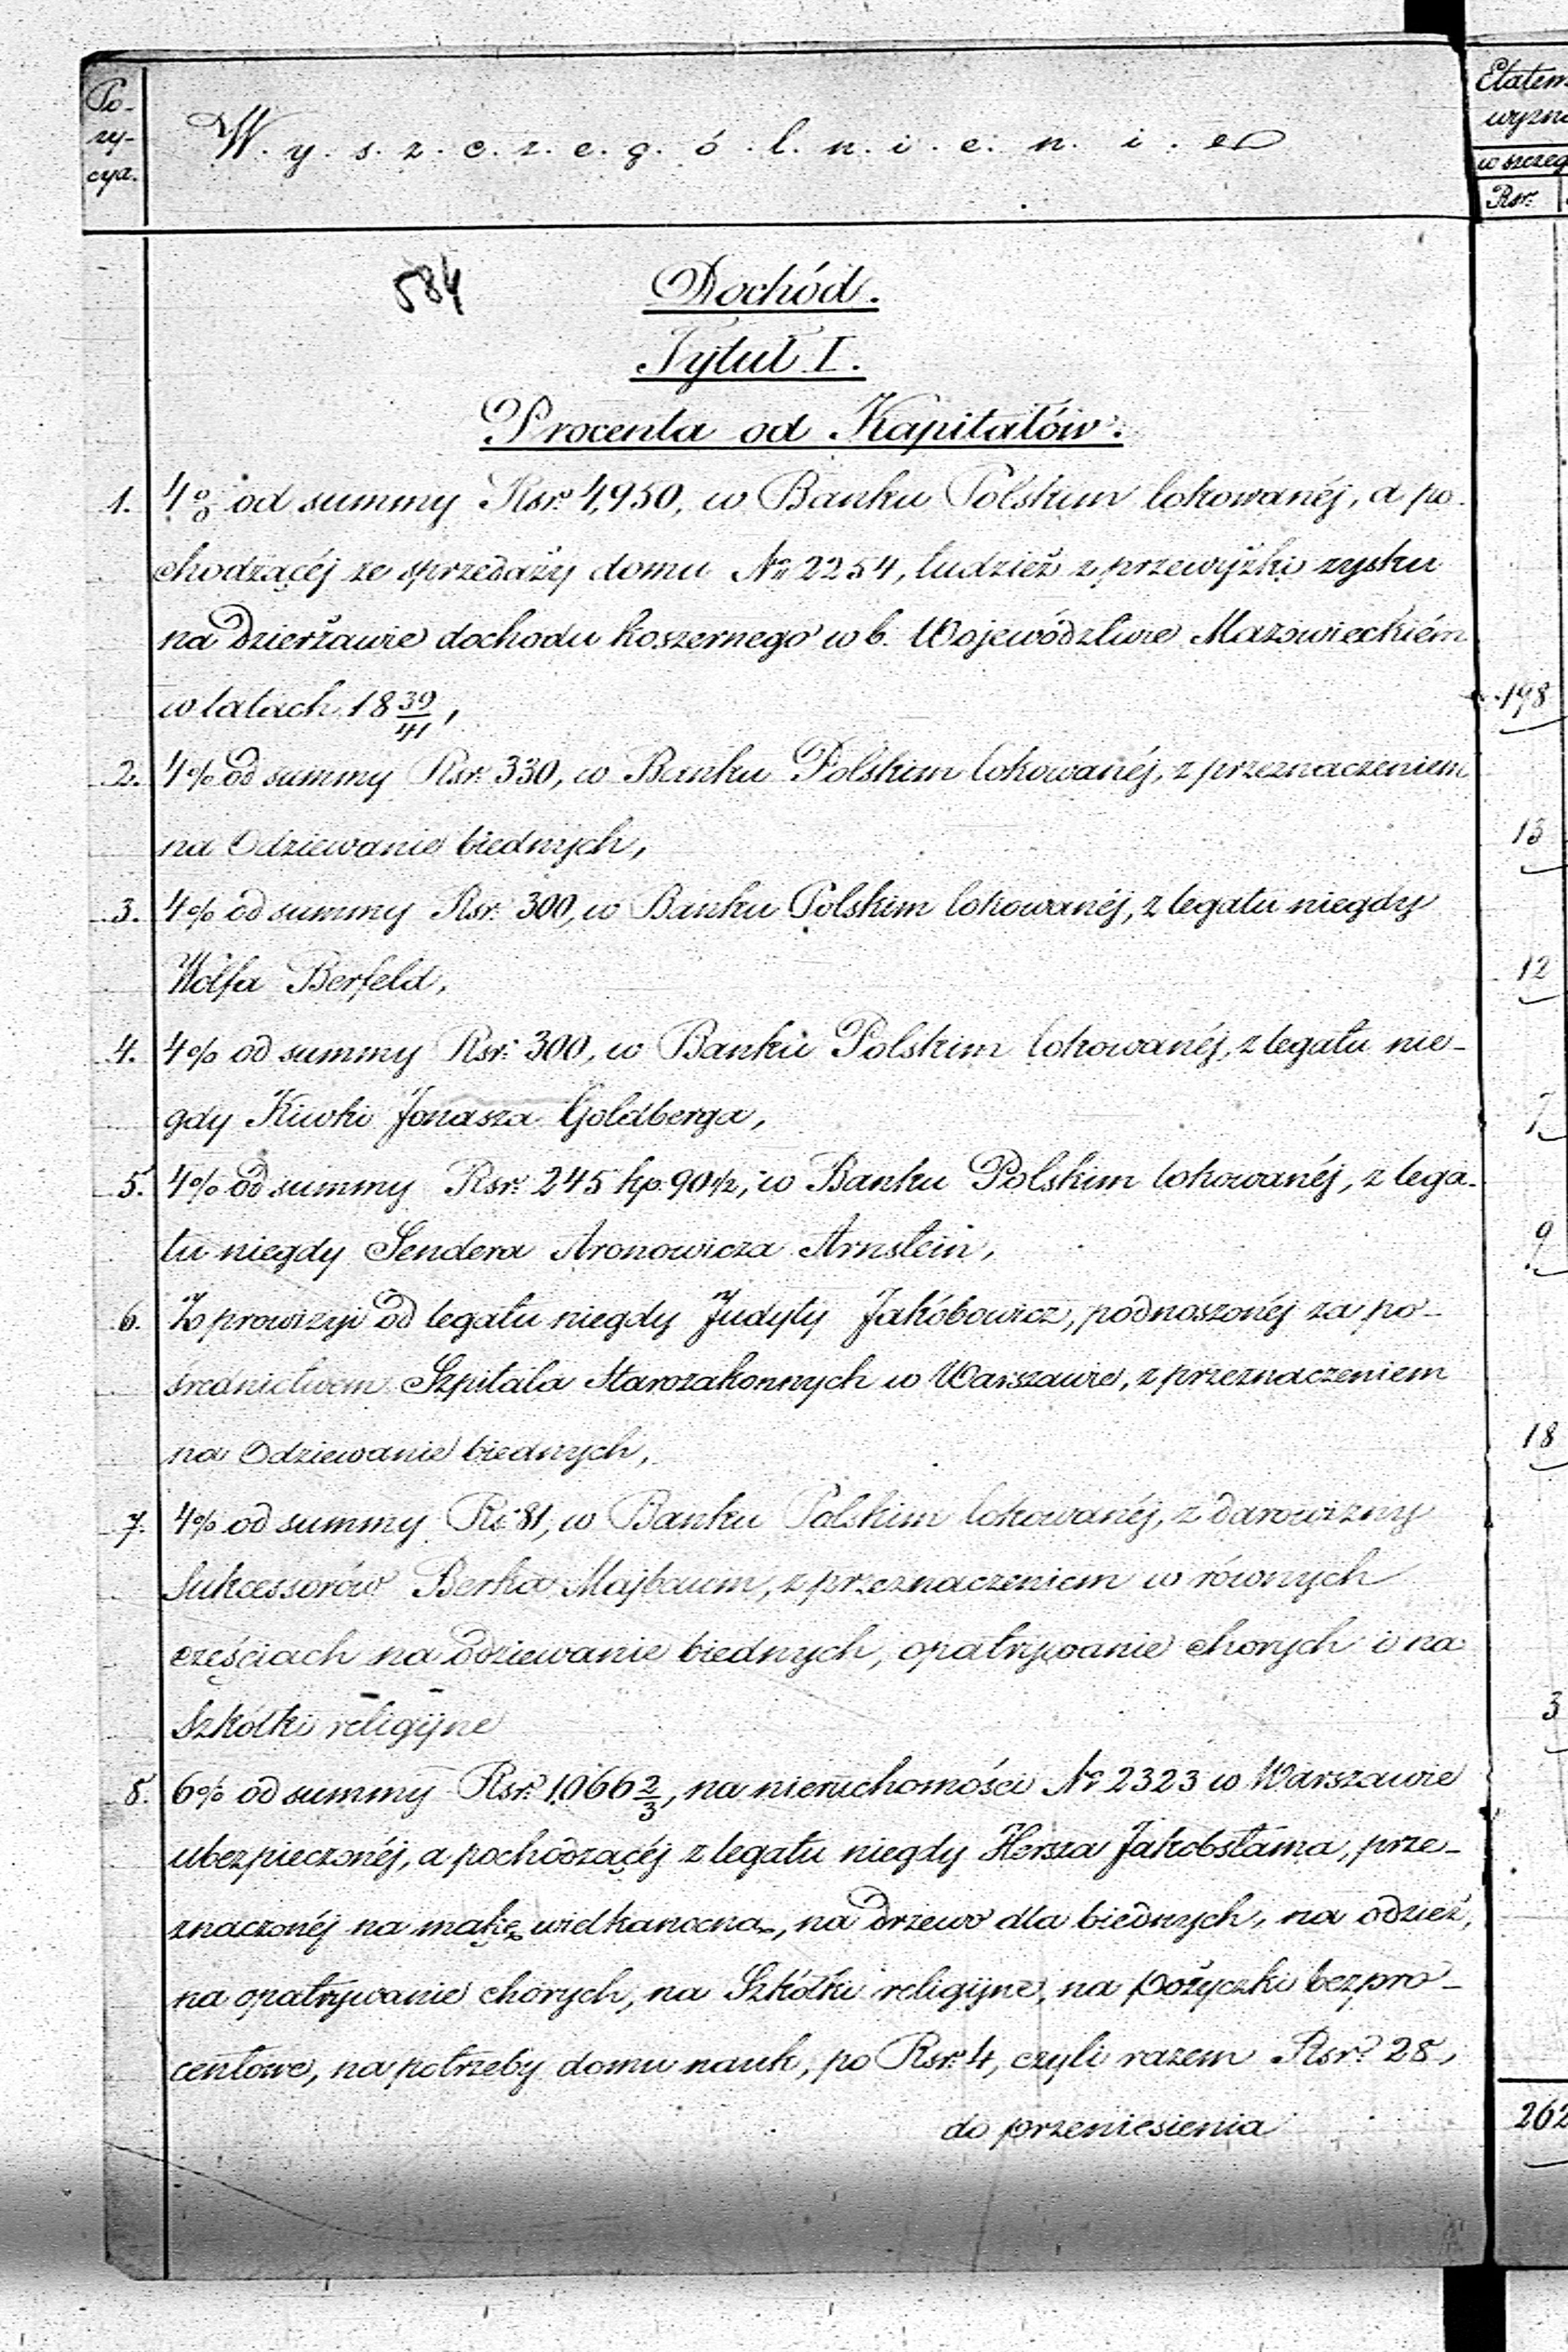 Po-
zy-
cya.
W.y.s.z.c.z.e.g.ó.l.n.i.e.n.i.e
Etatem
wyzna
w szczeg
Rsr.
584
Dochód.
Tytuł I.
Procenta od Kapitałów.
1. 4% od summy Rsr. 4,950, w Banku Polskim lokowanéj, a po-
chodzącéj ze sprzedaży domu № 2254, tudzież z przewyżki zysku
na Dzierżawie dochodu koszernego w b. Województwie Mazowieckiém
w latach 18 39/41,
198
2. 4% od summy Rsr. 330, w Banku Polskim lokowanéj, z przeznaczeniem
na Odziewanie biednych,
13
3. 4% od summy Rsr. 300, w Banku Polskim lokowanéj, z legatu niegdy
Wolfa Berfeld,
12
4. 4% od summy Rsr. 300, w Banku Polskim lokowanéj, z legatu nie-
gdy Kiwki Jonasza Goldberga,
5. 4% od summy Rsr. 245 kp. 90 1/2, w Banku Polskim lokowanéj, z lega-
tu niegdy Sendera Aronowicza Arnstein,
9
6. Z prowizyi od legatu niegdy Judyty Jakóbowicz, podnoszonéj za po-
średnictwem Szpitala Starozakonnych w Warszawie, z przeznaczeniem
na Odziewanie biednych,
18
7. 4% od summy Rs. 81, w Banku Polskim lokowanéj, z darowizny
Sukcessorów Berka Majbaum, z przeznaczeniem w równych
częściach na odziewanie biednych, opatrywanie chorych i na
Szkółki religijne
3
8. 6% od summy Rsr. 1,066 2/3, na nieruchomości № 2323 w Warszawie
ubezpieczonéj, a pochodzącéj z legatu niegdy Hersza Jakobstama, prze-
znaczonéj na mąkę wielkanocną, na drzewo dla biednych, na odzież,
na opatrywanie chorych, na Szkółki religijne, na pożyczki bezpro-
centowe, na potrzeby domu nauk, po Rsr. 4, czyli razem Rsr. 28,
do przeniesienia
262